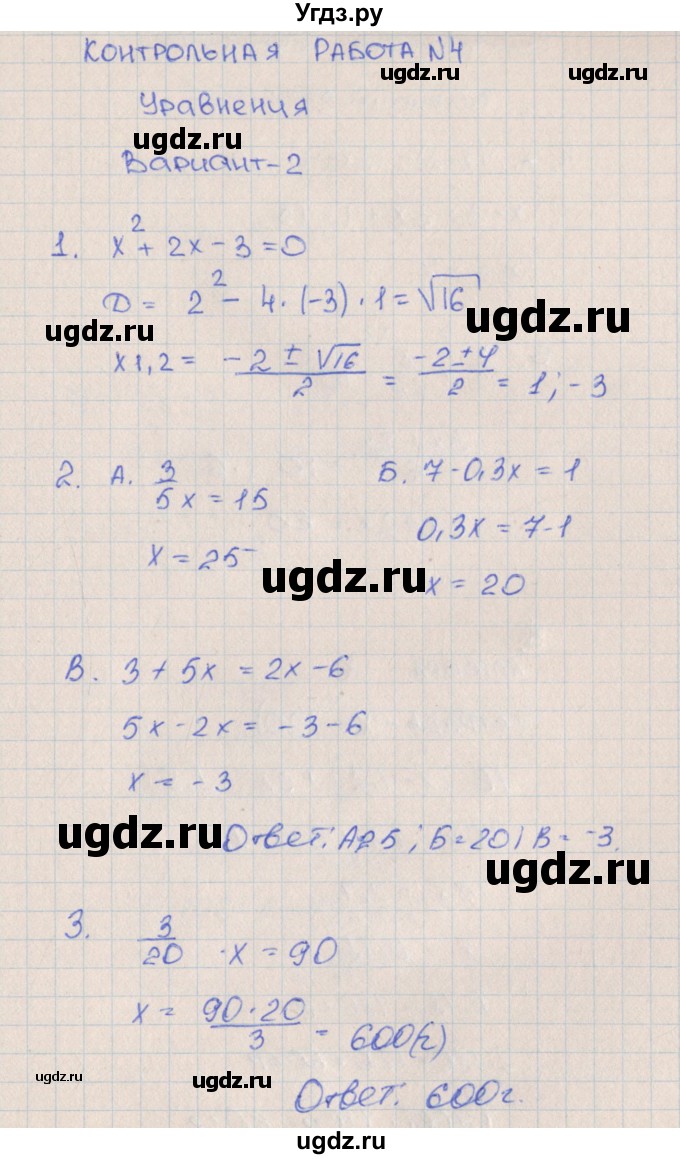 Угдз.ру
КОНТРОЛЬНАЯ РАБОТА №4
ugdz.ru
Уравнения
ugdz.ru
Вариант-2
ugdz.ru
1. x² + 2x - 3 = 0
D = 2² - 4·(-3)·1 = √16
ugdz.ru
ugdz.ru
x1,2 = (-2 ± √16)/2 = (-2 ± 4)/2 = 1; -3
2. А. 3/5 x = 15
x = 25
Б. 7 - 0,3x = 1
0,3x = 7-1
x = 20
ugdz.ru
В. 3 + 5x = 2x - 6
5x - 2x = -3 - 6
ugdz.ru
x = -3
ugdz.ru
Ответ: А 25; Б = 20; В = -3.
ugdz.ru
3. 3/20 · x = 90
ugdz.ru
x = (90·20)/3 = 600(г)
ugdz.ru
ugdz.ru
ugdz.ru
Ответ: 600г.
ugdz.ru